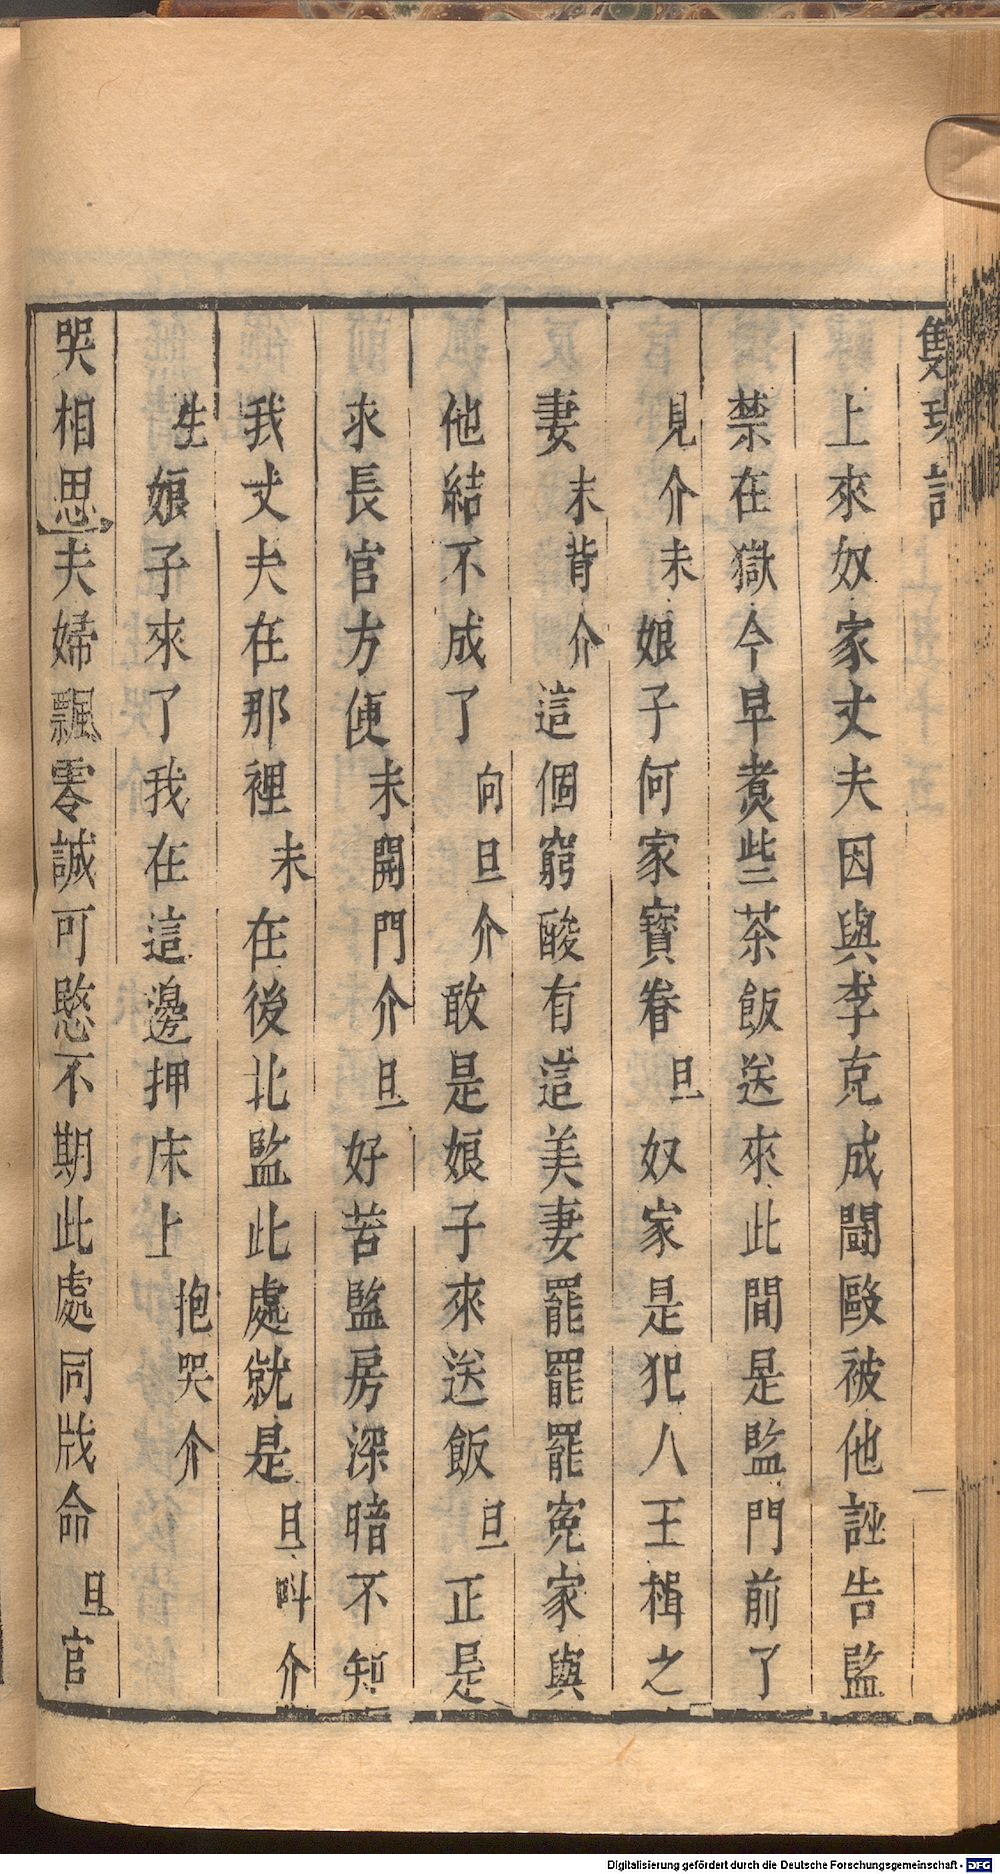 上來奴家丈夫因與李克成鬪毆被他誣告監
禁在獄今早煑些茶飯送來此間是監門前了
見介末娘子何家寳眷旦奴家是犯人王楫之
妻末背介這個窮酸有這美妻罷罷罷寃家與
他結不成了向旦介敢是娘子來送飯旦正是
求長官方便末開門介旦好苦監房深暗不知
我丈夫在那裡末在後北監此處就是旦呌介
生娘子來了我在這邊押床上抱哭介
哭相思夫婦飄零誠可愍不期此處同戕命旦官
Digitalisierung gefördert durch die Deutsche Forschungsgemeinschaft - DFG